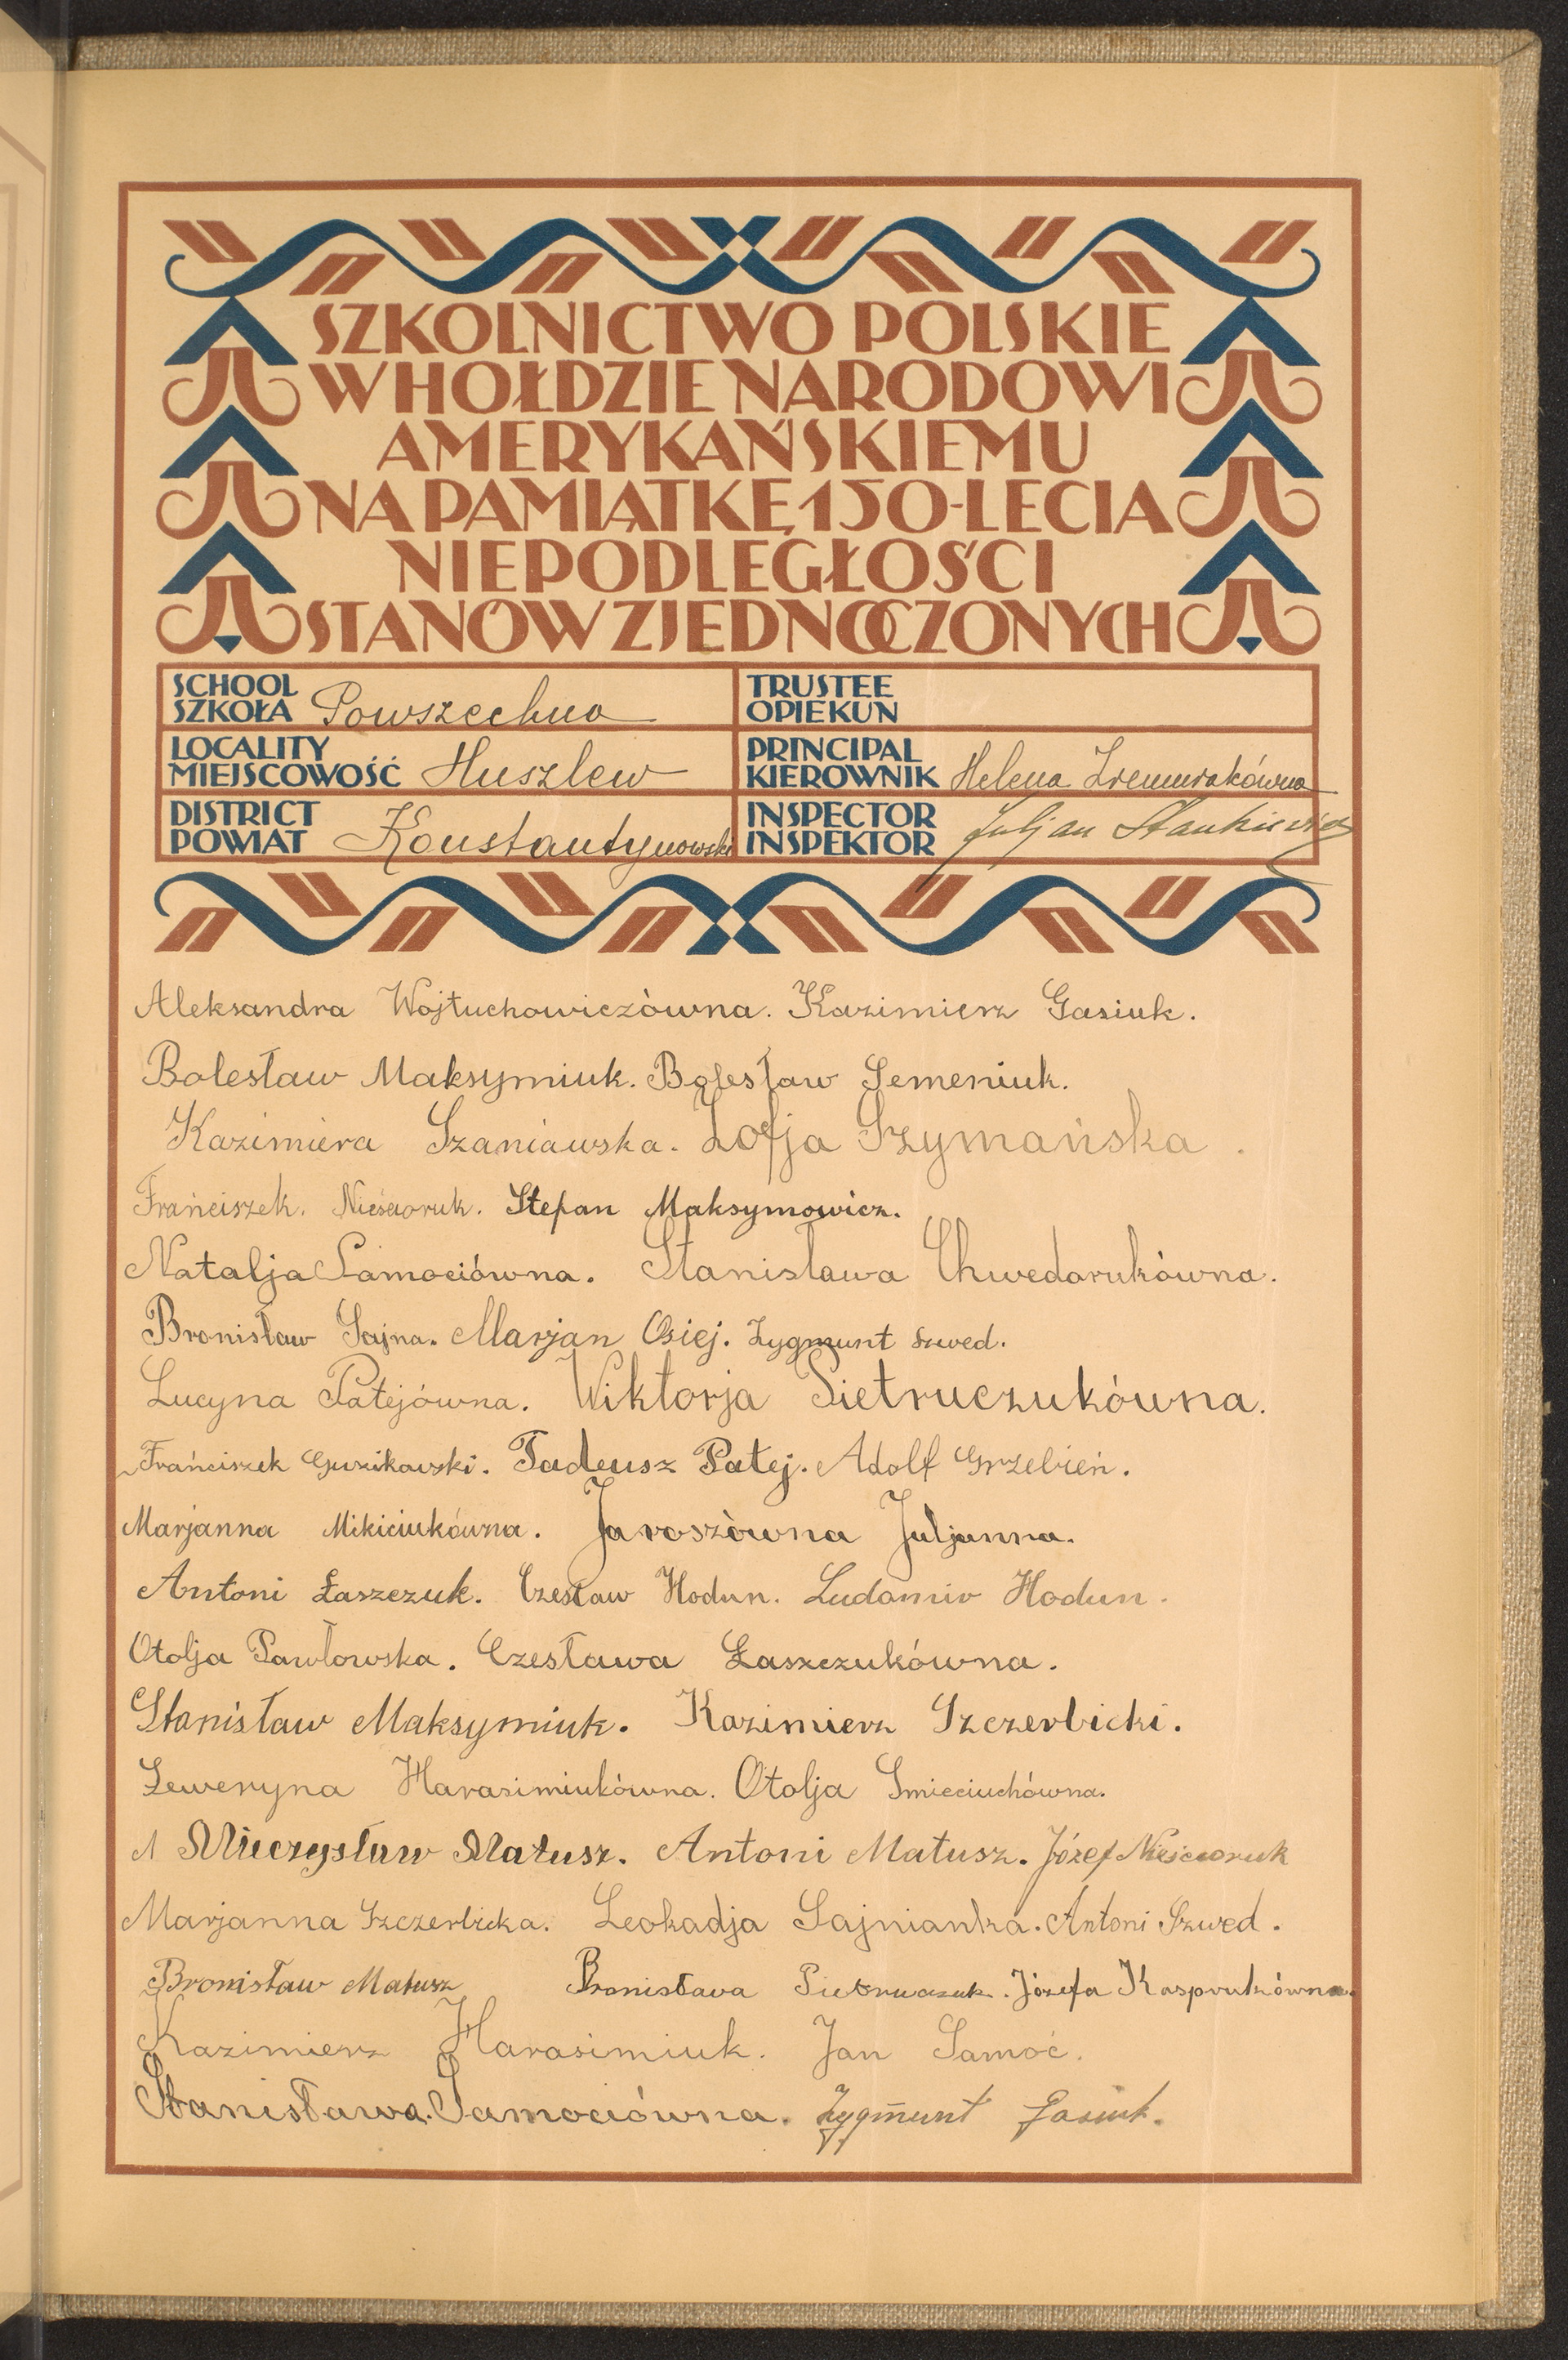 SZKOLNICTWO POLSKIE
W HOŁDZIE NARODOWI
AMERYKAŃSKIEMU
NA PAMIĄTKĘ 150-LECIA
NIEPODLEGŁOŚCI
STANÓW ZJEDNOCZONYCH
SCHOOL
SZKOŁA Powszechna
TRUSTEE
OPIEKUN
LOCALITY
MIEJSCOWOŚĆ Huszlew
PRINCIPAL
KIEROWNIK Helena
DISTRICT
POWIAT Konstantynowski
INSPECTOR
INSPEKTOR Juljan Stankiewicz
Aleksandra Wojtuchowiczówna. Kazimierz Gasiuk.
Bolesław Maksymiuk. Bolesław Semeniuk.
Kazimiera Szaniawska. Zofja Szymańska.
Frańciszek. Nieścioruk. Stefan Maksymowicz.
Natalja Samociówna. Stanisława Chwedorukówna.
Bronisław Sajna. Marjan Osiej. Zygmunt Szwed.
Lucyna Patejówna. Wiktorja Pietruczukówna.
Frańciszek Guzikowski. Tadeusz Patej. Adolf Grzebień.
Marjanna Mikiciukówna. Jaroszówna Juljanna.
Antoni Łaszczuk. Czesław Hodun. Ludomir Hodun.
Otolja Pawłowska. Czesława Łaszczukówna.
Stanisław Maksymiuk. Kazimierz Szczerbicki.
Seweryna Harasimiukówna. Otolja Smieciuchówna.
M Mieczysław Matusz. Antoni Matusz. Józef Nieścioruk
Marjanna Szczerbicka. Leokadja Sajnianka. Antoni Szwed.
Bronisław Matusz Bronisława Pietruczuk. Józefa Kasprukówna.
Kazimierz Harasimiuk. Jan Samoć.
Stanisława. Samociówna. Zygmunt Gasiuk.